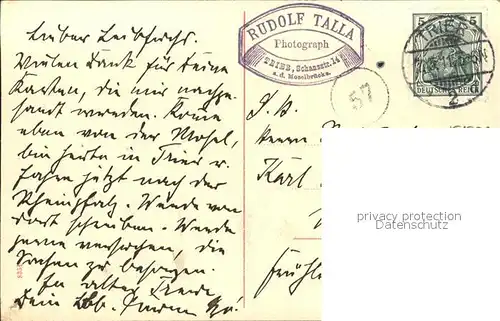 Lieber Leibfuchs.
Vielen Dank für Deine
Karten, die mir nachge-
sandt wurden. Komme
eben von der Mosel,
bin heute in Trier u.
fahre jetzt nach der
Rheinpfalz. Werde von
dort schreiben. Werde
gerne versuchen, die
Sachen zu besorgen.
In alter Treue
Dein Lbb.
RUDOLF TALLA
Photograph
TRIER, Schanzstr. 14
a. d. Moselbrücke.
57
5 5
TRIER
2
DEUTSCHES REICH
S. H.
Herrn
Karl
privacy protection
Datenschutz